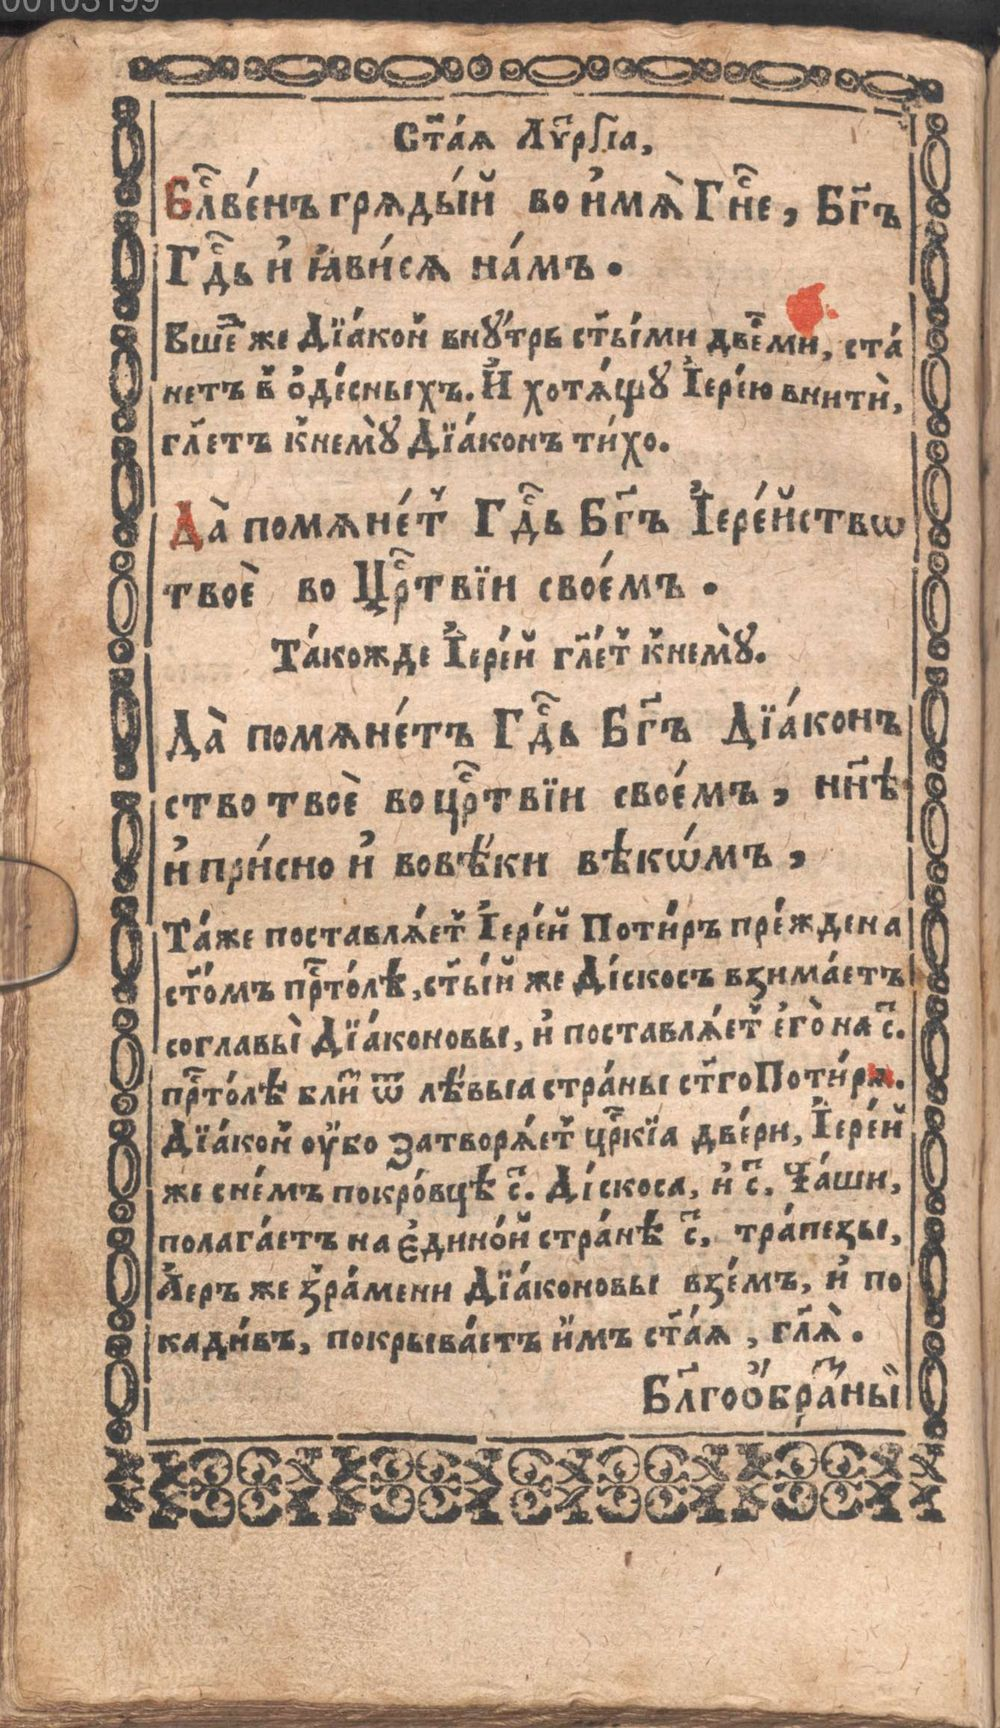 00103199
Ст҃а́ѧ Лѵ҃ргі́а,
Бл҃ве́нъ грѧды́й во и҆́мѧ Гн҃е, Бг҃ъ
Гд҃ь и҆ ꙗ҆ви́сѧ на́мъ.
Вше҃ же Дїа́кон внꙋ́трь ст҃ы́ми две҃ми, ста́
нетъ в̾ ѻ҆де́сныхъ. И҆ хотѧ́щꙋ І҆ере́ю внити̑,
гл҃етъ к̾немꙋ̀ Дїа́конъ ти́хо.
Да̀ помѧне́т Гд҃ь Бг҃ъ І҆ере́йствѡ
твоѐ во Цр҃твїи свое́мъ.
Та́кожде І҆ере́й гл҃е́т к̾немꙋ̀.
Да̀ помѧне́тъ Гд҃ь Бг҃ъ Дїа́конъ
ство твоѐ во цр҃твїи свое́мъ, нн҃ѣ
и҆ при́сно и҆ вовѣ́ки вѣкѡ́мъ,
Та́же поставлѧ́ет І҆ере́й Поти́ръ пре́ждена
ст҃о́мъ пр҃то́лѣ, ст҃ы́й же Ді́скосъ вꙁима́етъ
соглавы̀ Дїа́коновы, и҆ поставлѧ́ет є҆го̀ на с҃.
пр҃то́лѣ бли҃ ѿ лѣ́выа страны̀ ст҃гоПоти́рѧ.
Дїа́кон оу҆́бо затворѧ́ет цр҃кїа две́ри, І҆ере́й
же сне́мъ покро́вцѣ с҃. Ді́скоса, и҆ с҃. Ча́ши,
полага́етъ на є҆дино́й стра́нѣ с҃. тра́пеꙁы,
А҆́еръ же ꙁ̾ра́мени Дїа́коновы вꙁе́мъ, и҆ по
кади́въ, покрыва́етъ и҆́мъ ст҃а́ѧ, гл҃ѧ̀.
Бл҃гоѻ҆бра҃ный